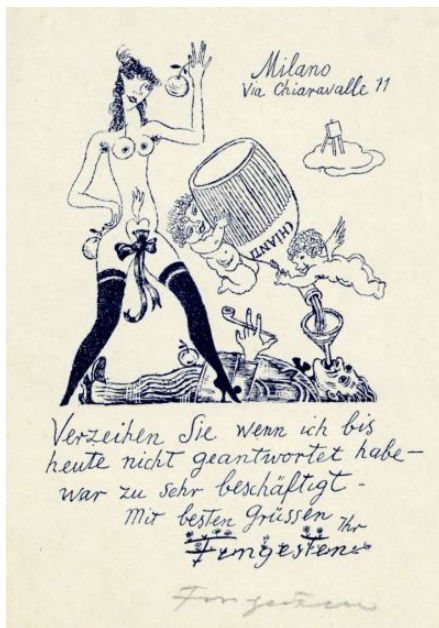 Milano
Via Chiaravalle 11
CHIANTI
Verzeihen Sie wenn ich bis
heute nicht geantwortet habe –
war zu sehr beschäftigt –
Mit besten Grüssen Ihr
Fingesten
Fingesten